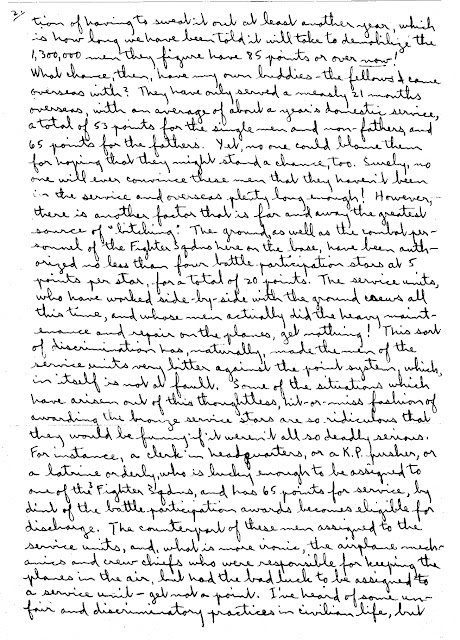 2.
tion of having to sweat it out at least another year, which
is how long we have been told it will take to demobilize the
1,300,000 men they figure have 85 points or over now!
What chance, then, have my own buddies - the fellows I came
overseas with? They have only served a measly 21 months
overseas, with an average of about a year's domestic service,
a total of 53 points for the single men and non-fathers, and
65 points for the fathers. Yet, no one could blame them
for hoping that they might stand a chance, too. Surely, no
one will ever convince these men that they haven't been
in the service and overseas plenty long enough! However, -
there is another factor that is far and away the greatest
source of "bitching". The ground, as well as the control per-
sonnel of the Fighter Sqdns here on the base, have been auth-
orized no less than four battle participation stars at 5
points per star, for a total of 20 points. The service units,
who have worked side-by-side with the ground crews all
this time, and whose men actually did the heavy maint-
enance and repair on the planes, get nothing! This sort
of discrimination has, naturally, made the men of the
service units very bitter against the point system, which,
in itself is not at fault. Some of the situations which
have arisen out of this thoughtless, hit-or-miss fashion of
awarding the bronze service stars are so ridiculous that
they would be funny if it weren't all so deadly serious.
For instance, a clerk in headquarters, or a K.P. pusher, or
a latrine orderly, who is lucky enough to be assigned to
one of the 3 Fighter Sqdns, and has 65 points for service, by
dint of the battle participation awards becomes eligible for
discharge. The counterpart of these men assigned to the
service units, and, what is more ironic, the airplane mech-
anics and crew chiefs who were responsible for keeping the
planes in the air, but had the bad luck to be assigned to
a service unit - get not a point. I've heard of some un-
fair and discriminatory practices in civilian life, but